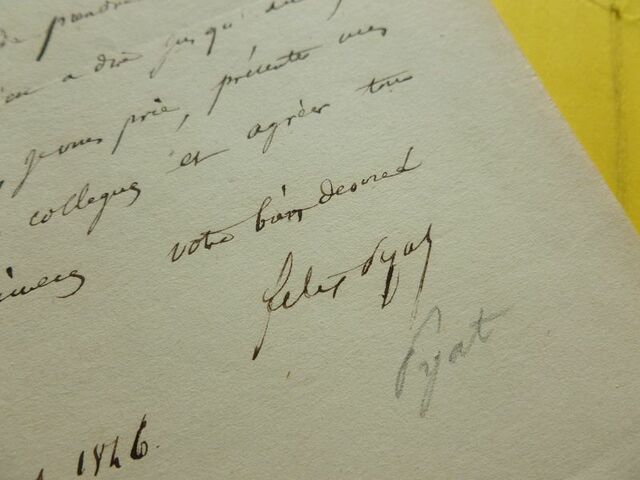 de prendre
a dire jusqu'au
je vous prie, présenter mes
collegues et agréer tous
votre bien devoué
felix Pyat
Pyat
1846.